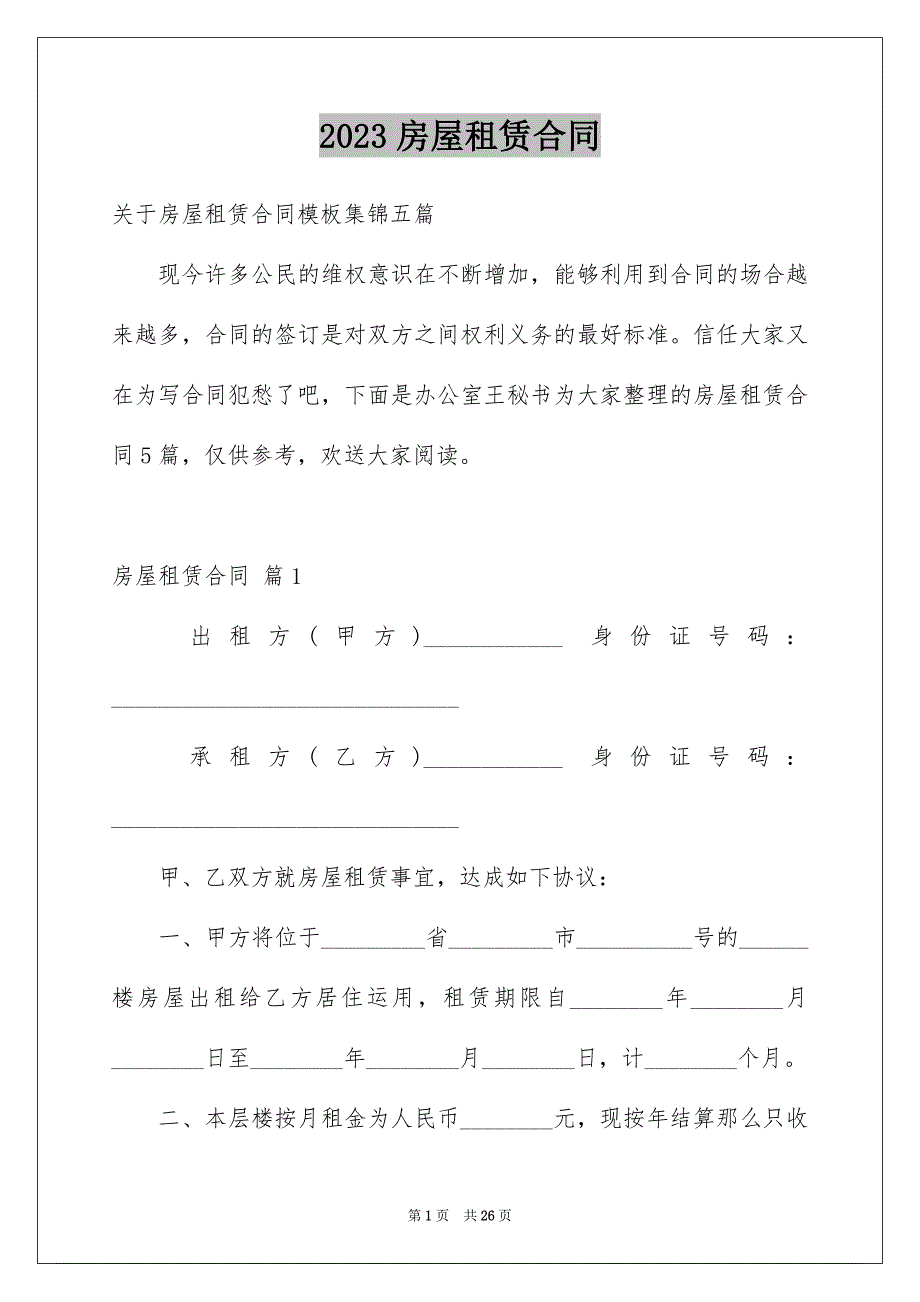 2023房屋租赁合同
关于房屋租赁合同模板集锦五篇
现今许多公民的维权意识在不断增加，能够利用到合同的场合越
来越多，合同的签订是对双方之间权利义务的最好标准。信任大家又
在为写合同犯愁了吧，下面是办公室王秘书为大家整理的房屋租赁合
同5篇，仅供参考，欢送大家阅读。
房屋租赁合同 篇1
出租方(甲方)____________ 身份证号码：
______________________________
承租方(乙方)____________ 身份证号码：
______________________________
甲、乙双方就房屋租赁事宜，达成如下协议：
一、甲方将位于_________省_________市__________号的______
楼房屋出租给乙方居住运用，租赁期限自________年________月
________日至________年________月________日，计________个月。
二、本层楼按月租金为人民币________元，现按年结算那么只收
第1页 共26页